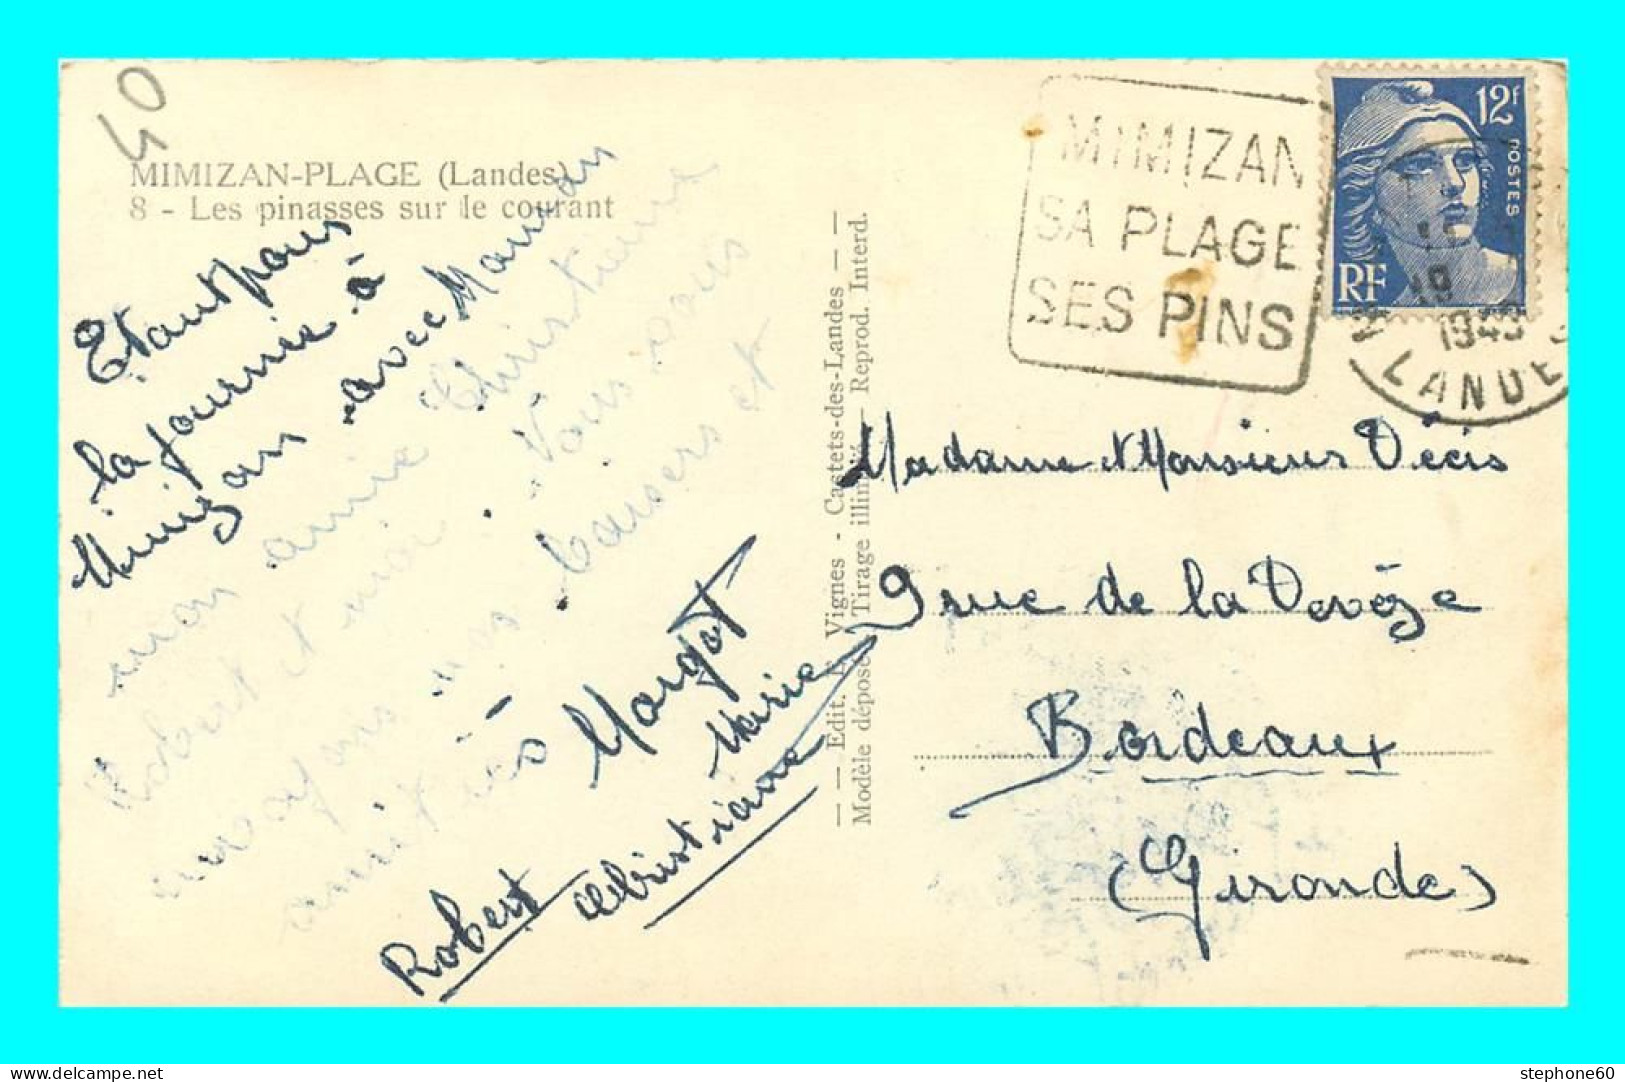 40
MIMIZAN-PLAGE (Landes)
8 - Les pinasses sur le courant
Etant pour
la journée à
Mimizan avec Maman
mon amie Christiane
Robert et moi Vous
envoyons nos baisers et
amitiés
Margot
Marie
Christiane
Robert
— — Edit. Vignes - Castets-des-Landes — —
Modèle déposé Tirage illimité - Reprod. Interd.
MIMIZAN
SA PLAGE
SES PINS
12f
POSTES
RF
19
LANDE
Madame et Monsieur Décis
9 rue de la Devèze
Bordeaux
(Gironde)
stephone60